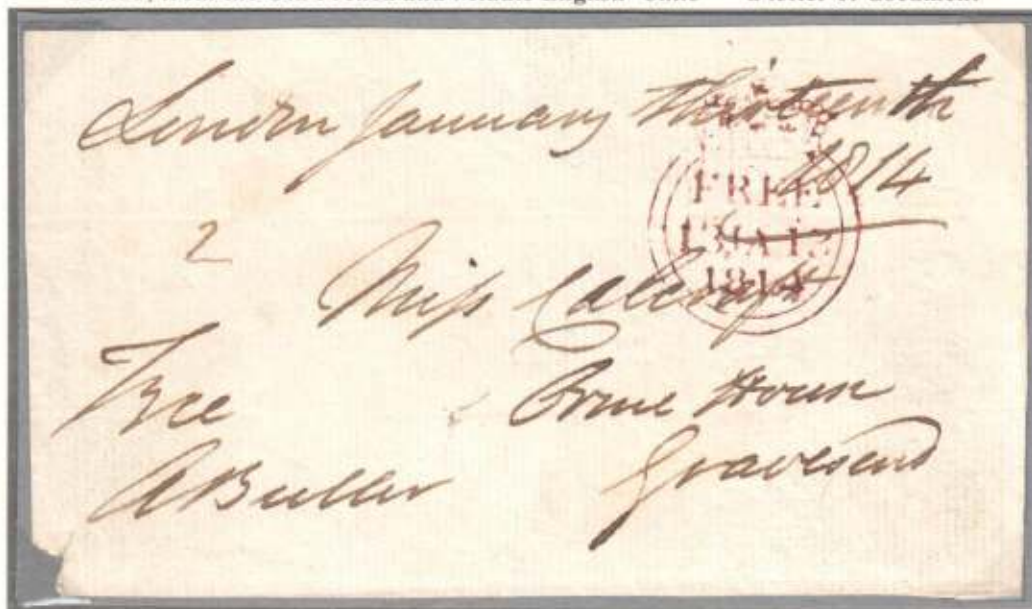 London January thirteenth
1814
FREE
13 JA 13
1814
2
Miss Calcraft
Free
House
ABuller
Gravesend